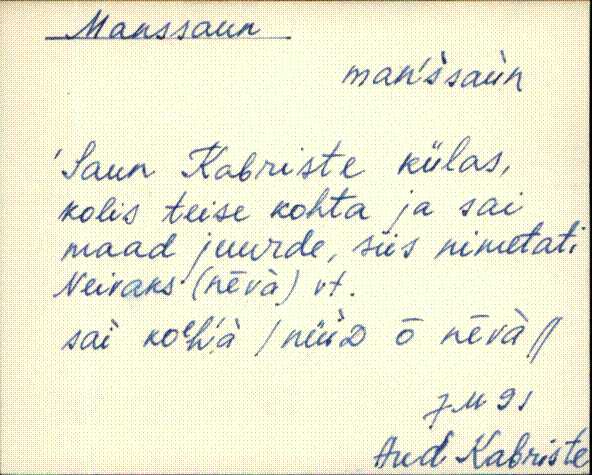 Manssaun
man's̀saùn
'Saun Kabriste külas,
kolis teise kohta ja sai
maad juurde, siis nimetati
Neivaks (nēvà) vt.
saì nüìD ō nēvà //
Aud Kabriste